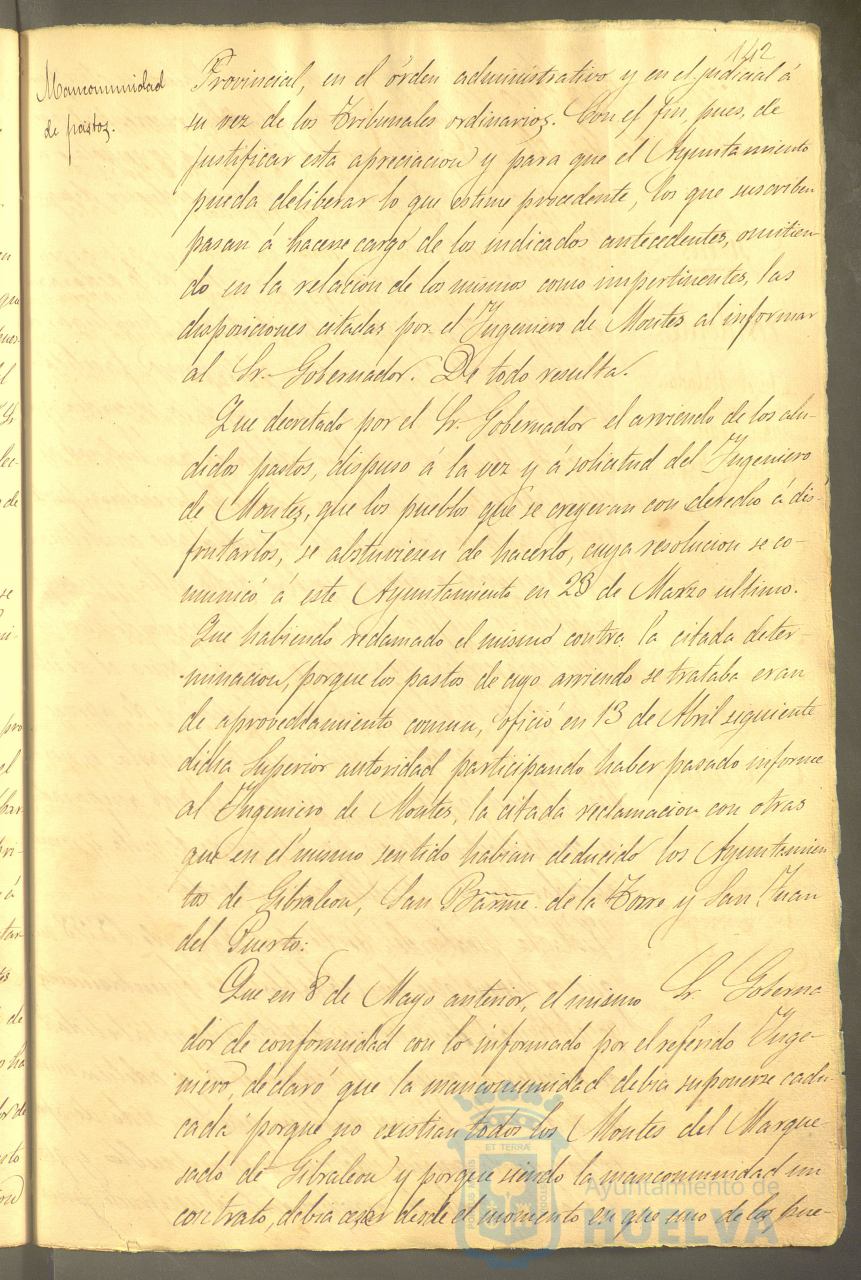 142
Mancomunidad
de pastos.
Provincial, en el órden administrativo y en el judicial á
su vez de los Tribunales ordinarios. Con el fin, pues, de
justificar esta apreciacion y para que el Ayuntamiento
pueda deliberar lo que estime procedente, los que suscriben
pasan á hacerse cargo de los indicados antecedentes, omitien-
do en la relacion de los mismos como impertinentes, las
disposiciones citadas por el Ingeniero de Montes al informar
al Sr. Gobernador. De todo resulta.
Que decretado por el Sr. Gobernador el arriendo de los alu-
didos pastos, dispuso á la vez y á solicitud del Ingeniero
de Montes, que los pueblos que se creyeran con derecho á dis-
frutarlos, se abstuviesen de hacerlo, cuya resolucion se co-
municó á este Ayuntamiento en 28 de Marzo ultimo.
Que habiendo reclamado el mismo contra la citada deter-
minacion, porque los pastos de cuyo arriendo se trataba eran
de aprovechamiento comun, ofició en 13 de Abril siguiente
dicha Superior autoridad participando haber pasado informe
al Ingeniero de Montes, la citada reclamacion con otras
que en el mismo sentido habian deducido los Ayuntamien
tos de Gibraleon, San Barme. de la Torre y San Juan
del Puerto:
Que en 8 de Mayo anterior, el mismo Sr. Goberna
dor de conformidad con lo informado por el referido Inge-
niero, declaró que la mancomunidad debia suponerse cadu-
cada porque no existian todos los Montes del Marque-
sado de Gibraleon y porque siendo la mancomunidad un
contrato, debia cesar desde el momento en que uno de los pue-
ET TERRÆ
Ayuntamiento de
HUELVA